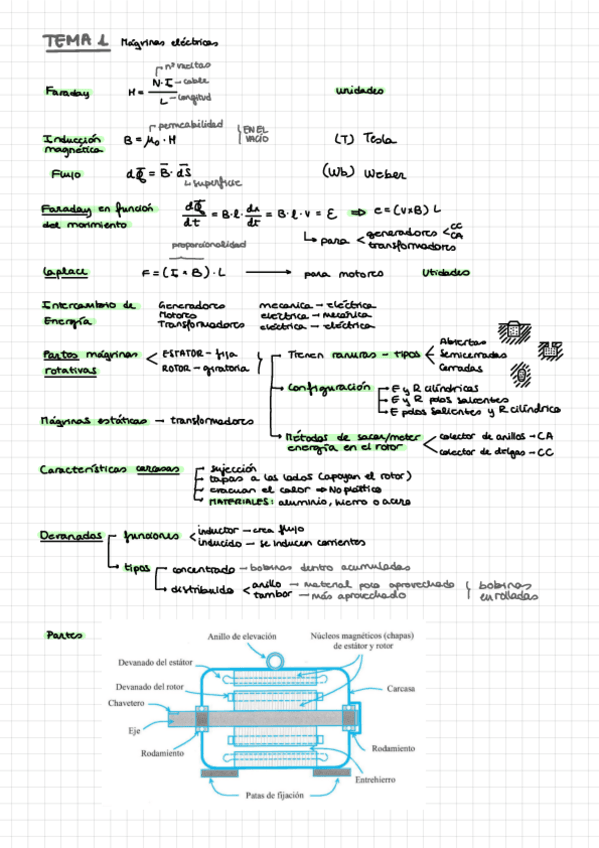 TEMA 1 Máquinas eléctricas
nº vueltas
Faraday H = N·I / L
cable
longitud
unidades
permeabilidad
Inducción magnética B = μ₀ · H EN EL VACÍO (T) Tesla
Flujo dΦ = B · dS (Wb) Weber
superficie
Faraday en función del movimiento dΦ/dt = B·l·dx/dt = B·l·v = E ⇒ e = (v×B) L
para generadores CC CA
transformadores
proporcionalidad
Laplace F = (I × B) · L → para motores Utilidades
Intercambio de Energía
Generadores mecánica → eléctrica
Motores eléctrica → mecánica
Transformadores eléctrica → eléctrica
Partes máquinas rotativas
ESTATOR – fija
ROTOR – giratoria
Tienen ranuras – tipos
Abiertas
Semicerradas
Cerradas
Configuración
E y R cilíndricas
E y R polos salientes
E polos salientes y R cilíndrico
Máquinas estáticas → transformadores
Métodos de sacar/meter energía en el rotor
colector de anillos – CA
colector de delgas – CC
Características carcasas
sujección
tapas a los lados (apoyan el rotor)
evacuan el calor ⇒ No plástico
MATERIALES: aluminio, hierro o acero
Devanados
funciones
inductor – crea flujo
inducido – se inducen corrientes
tipos
concentrado – bobinas dentro acumuladas
distribuido
anillo – material poco aprovechado
tambor – más aprovechado
bobinas enrolladas
Partes
Anillo de elevación
Núcleos magnéticos (chapas) de estátor y rotor
Devanado del estátor
Devanado del rotor
Carcasa
Chavetero
Eje
Rodamiento
Rodamiento
Entrehierro
Patas de fijación